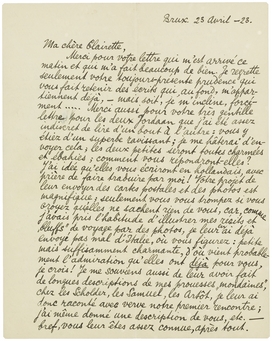 Brux 23 Avril -28.
Ma chère Clairette,
Merci pour votre lettre qui m'est arrivée ce
matin et qui m'a fait beaucoup de bien. Je regrette
seulement votre toujours-présente prudence qui
vous fait retenir des écrits qui, au fond, m'appar-
tiennent déjà, — mais soit, je m'incline, forcé-
ment..... Merci aussi pour votre très gentille
lettre pour les deux Jordaan que j'ai été assez
indiscret de lire d'un bout à l'autre; vous y
êtes d'un superbe ravissant; je me hâterai d'en-
voyer cela; les deux petites seront toutes charmées
et ébahies; comment vous répondront-elles?
J'ai idée qu'elles vous écriront en hollandais, avec
prière de faire traduire par moi. Votre projet de
leur envoyer des cartes postales et des photos est
magnifique; seulement vous vous trompez si vous
croyez qu'elles ne sachent rien de vous, car, comme
j'avais pris l'habitude d'illustrer mes récits et
bluffs de voyage par des photos, je leur ai déjà
envoyé pas mal d'Italie, où vous figurez: petite
mais suffisamment charmante, d'où vient probable-
ment l'admiration qu'elles ont déjà pour vous,
je crois! Je me souviens aussi de leur avoir fait
de longues descriptions de mes prouesses mondaines?
chez les Scholder, les Samuel, les Artôt, je leur ai
donc raconté avec verve notre première rencontre;
j'ai même donné une description de vous, etc —
bref, vous leur êtes assez connue, après tout.